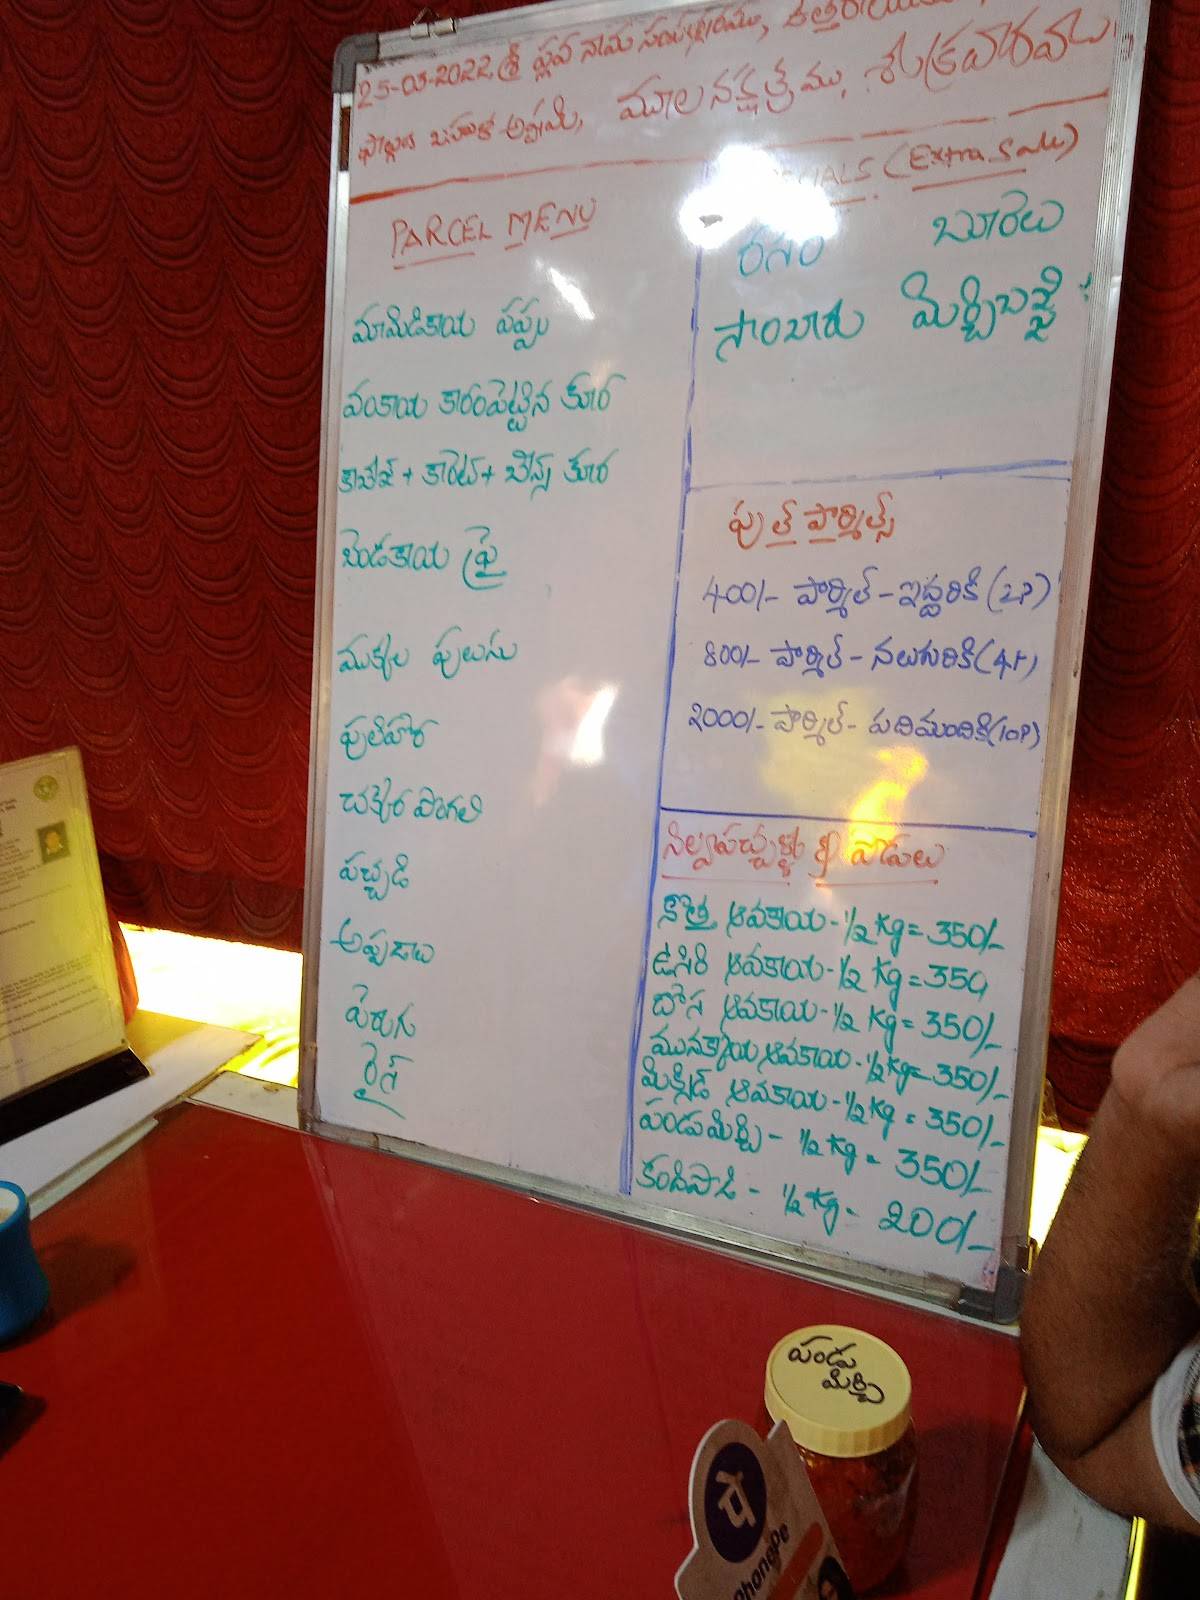 25-03-2022 శ్రీ ప్లవ నామ సంవత్సరము,
ఫాల్గుణ బహుళ అష్టమి, మూలనక్షత్రము, శుక్రవారము
PARCEL MENU
మామిడికాయ పప్పు
వంకాయ కారంపెట్టిన కూర
క్యాబేజ్ + కారెట్ + బీన్స్ కూర
బెండకాయ ఫ్రై
ముక్కల పులుసు
పులిహోర
చక్కెర పొంగలి
పచ్చడి
అప్పడాలు
పెరుగు
రైస్
(Extra
రసం బూరెలు
సాంబారు మిర్చిబజ్జీ
ఫుల్ పార్శిల్స్
400/- పార్శిల్ - ఇద్దరికి (2P)
800/- పార్శిల్ - నలుగురికి (4P)
2000/- పార్శిల్ - పదిమందికి (10P)
నిల్వపచ్చళ్ళు & పొడులు
కొత్త ఆవకాయ - 1/2 Kg = 350/-
ఉసిరి ఆవకాయ - 1/2 Kg = 350
దోస ఆవకాయ - 1/2 Kg = 350/-
మునక్కాయ ఆవకాయ - 1/2 Kg = 350/-
మిక్సిడ్ ఆవకాయ - 1/2 Kg = 350/-
పండుమిర్చి - 1/2 Kg = 350/-
కందిపొడి - 1/2 Kg - 200/-
పండు
మిర్చి
पे
PhonePe